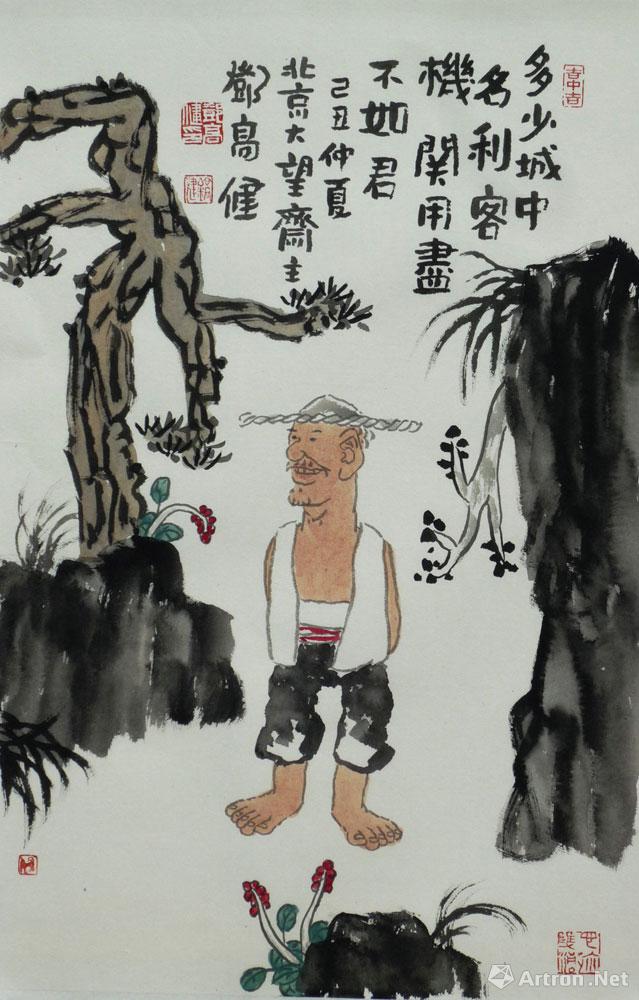 多少城中
名利客
機關用盡
不如君
己丑仲夏
北京大望齋主
鄧高健
Artron.Net